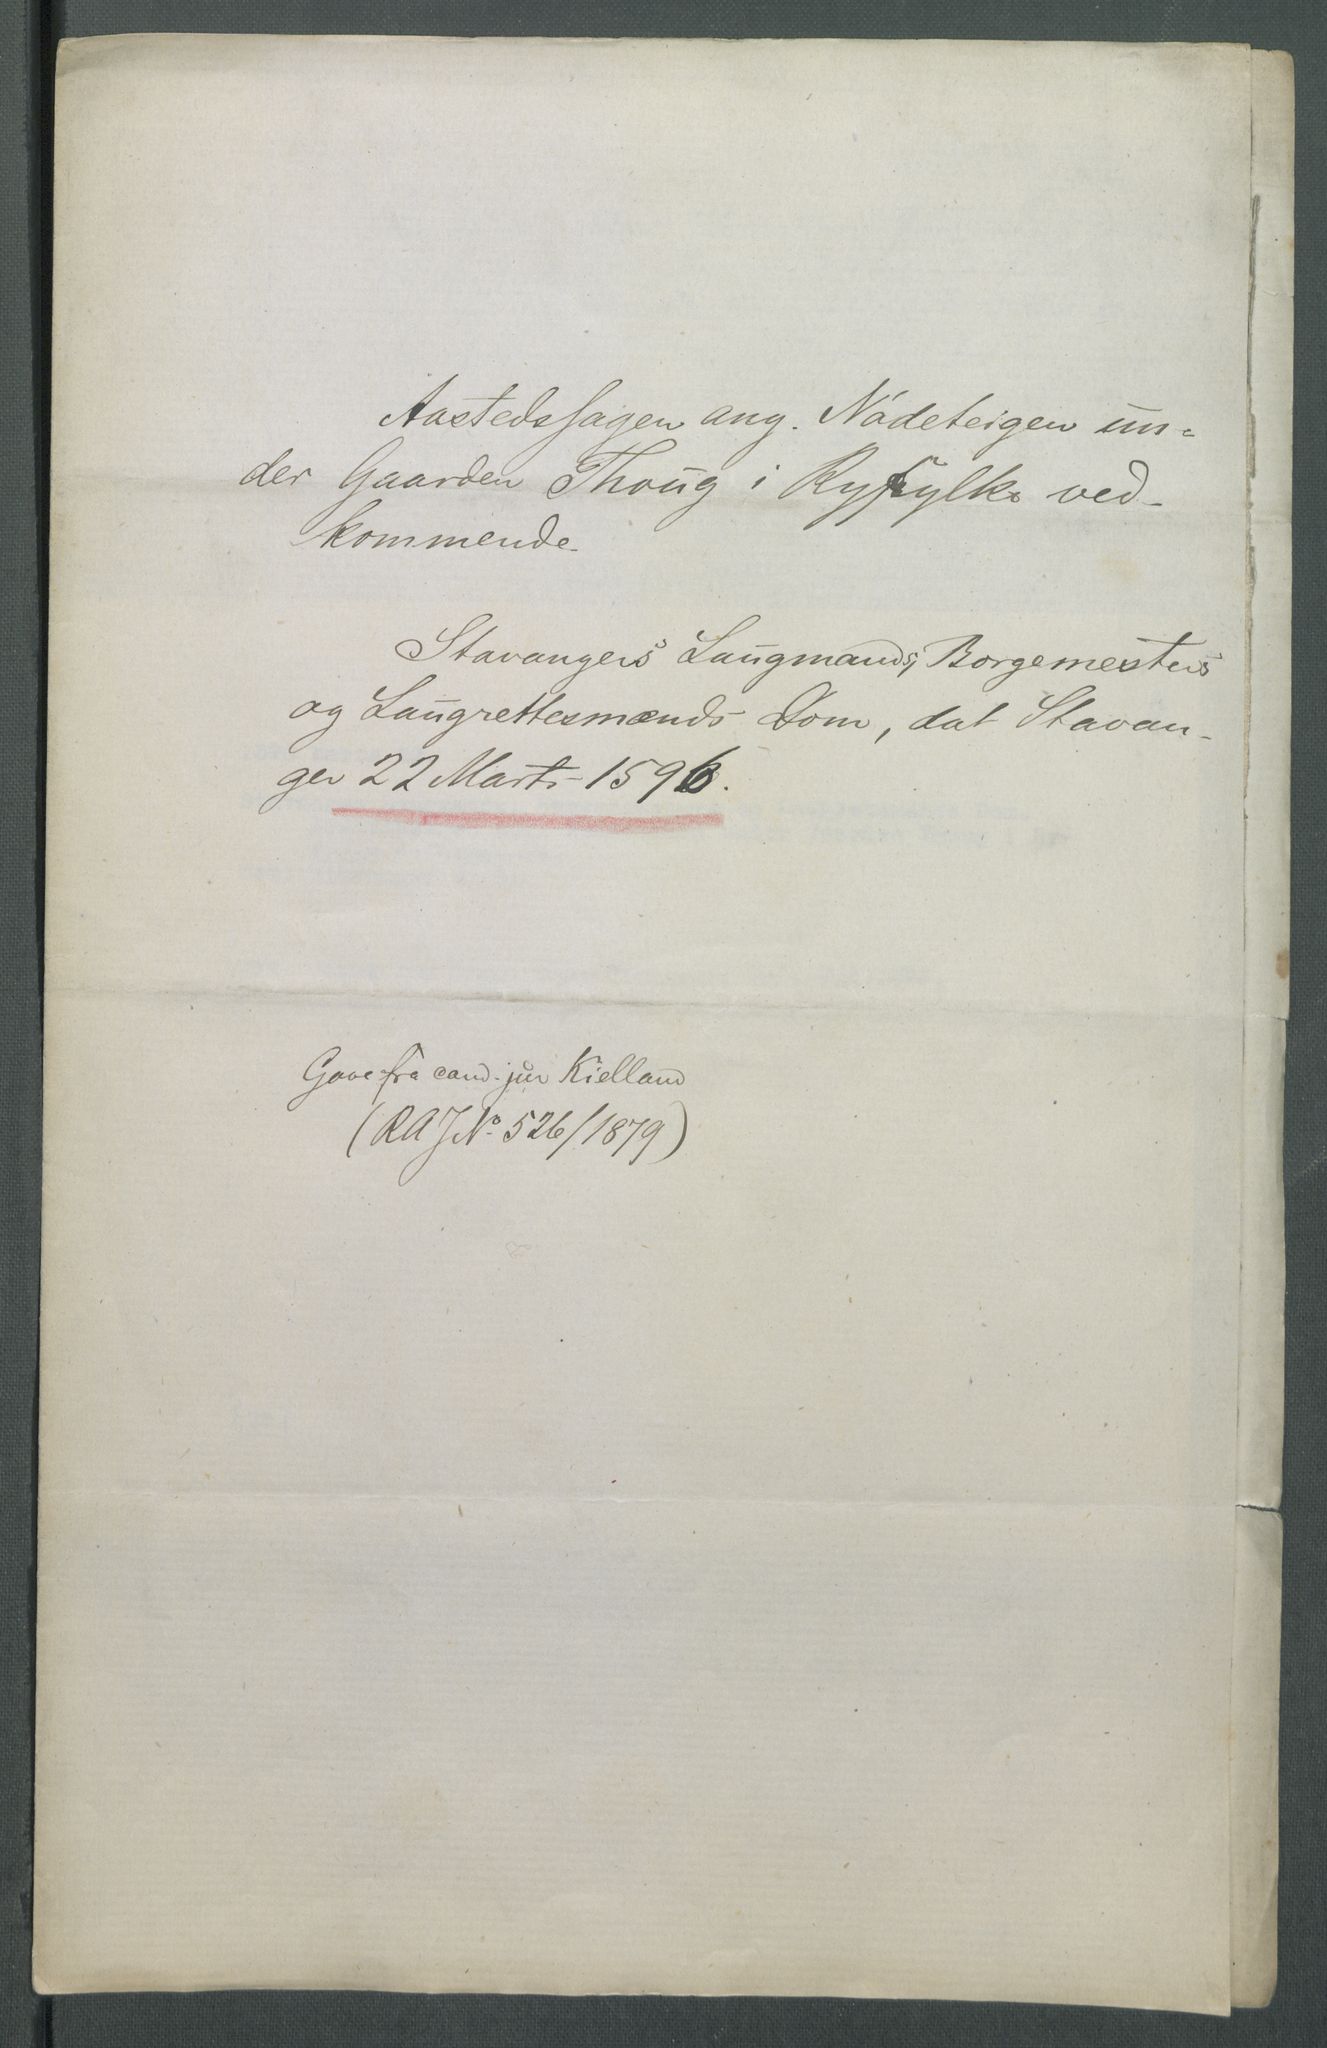 Aastedssagen ang. Nödeteigen un-
der Gaarden Thoug i Ryfylke ved-
kommende.
Stavangers Laugmands, Borgemesters
og Laugrettesmænds Dom, dat Stavan-
ger 22 Marts 1596.
Gave fra cand. jur Kielland
(RA JNo. 526/1879)